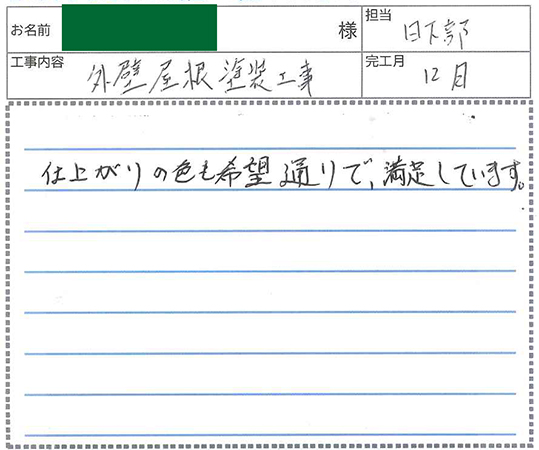 お名前 様 担当 日下部
工事内容 外壁屋根塗装工事 完工月 12月
仕上がりの色も希望通りで、満足しています。